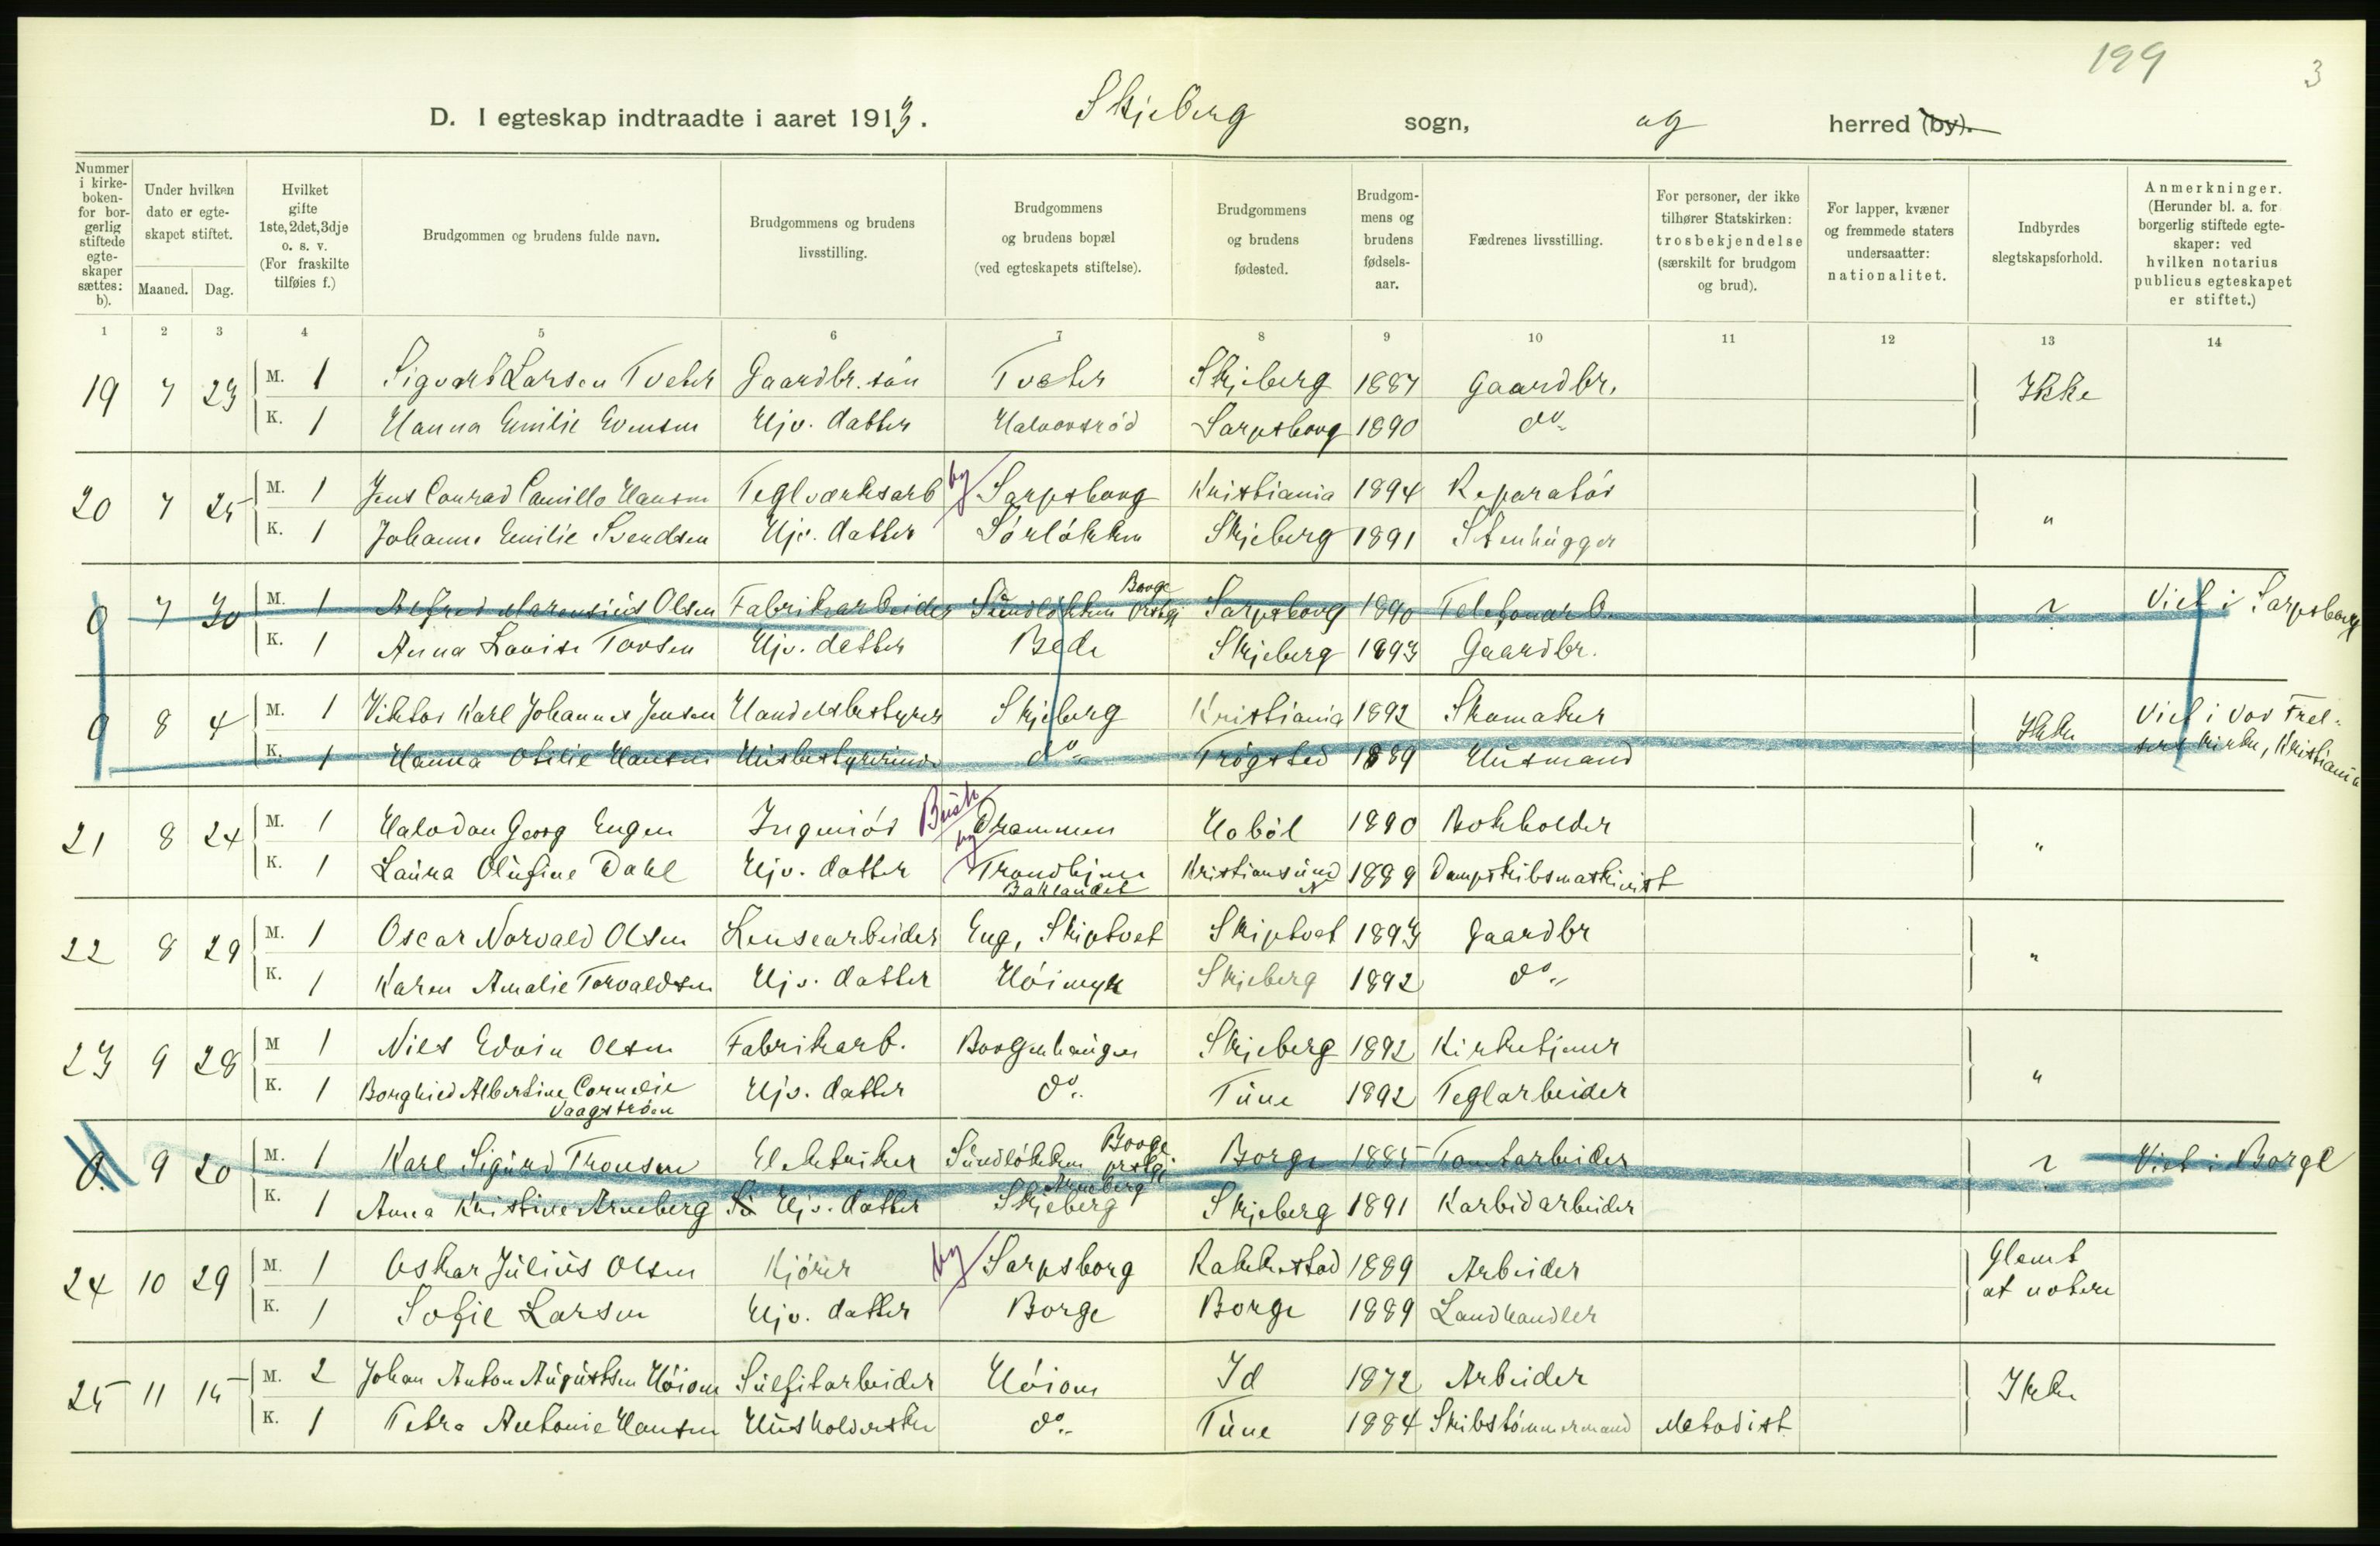 199
3
D. I egteskap indtraadte i aaret 1913. Skjeberg sogn, og herred (by).
Nummer i kirkeboken- for borgerlig stiftede egteskaper sættes: b).
Under hvilken dato er egteskapet stiftet.
Maaned. Dag.
Hvilket gifte 1ste, 2det, 3dje o. s. v. (For fraskilte tilføies f.)
Brudgommen og brudens fulde navn.
Brudgommens og brudens livsstilling.
Brudgommens og brudens bopæl (ved egteskapets stiftelse).
Brudgommens og brudens fødested.
Brudgommens og brudens fødselsaar.
Fædrenes livsstilling.
For personer, der ikke tilhører Statskirken: trosbekjendelse (særskilt for brudgom og brud).
For lapper, kvæner og fremmede staters undersaatter: nationalitet.
Indbyrdes slegtskapsforhold.
Anmerkninger. (Herunder bl. a. for borgerlig stiftede egteskaper: ved hvilken notarius publicus egteskapet er stiftet.)
1 2 3 4 5 6 7 8 9 10 11 12 13 14
19 7 23 M. 1 Sigvart Larsen Tveter Gaardbr. søn Tveter Skjeberg 1887 Gaardbr. Ikke
K. 1 Hanna Emilie Evensen Hjv. datter Halvorsrød Sarpsborg 1890 do
20 7 25 M. 1 Jens Conrad Camillo Hansen Teglværksarb by Sarpsborg Kristiania 1894 Reparatør "
K. 1 Johanne Emilie Svendsen Hjv. datter Sørløkken Skjeberg 1891 Stenhugger
0 7 30 M. 1 Alfred Marensius Olsen Fabrikarbeider Sundløkken Borge Prstgj Sarpsborg 1890 Telefonarb. ? Viet i Sarpsborg
K. 1 Anna Lovise Torsen Hjv. datter Bede Skjeberg 1893 Gaardbr.
0 8 4 M. 1 Viktor Karl Johannes Jensen Handelsbestyrer Skjeberg Kristiania 1892 Skomaker Ikke Viet i Vor Frel-
K. 1 Hanna Otilie Hansen Husbestyrerinde do Trøgsted 1889 Husmand sers kirke, Kristiania
21 8 24 M. 1 Halvdan Georg Eugen Ingeniør Busk by Drammen Hobøl 1890 Bokholder "
K. 1 Laura Olufine Dahl Hjv. datter Trondhjem Baklandet Kristiansund N 1889 Dampskibsmaskinist
22 8 29 M. 1 Oscar Norvald Olsen Lensearbeider Eng, Skiptvet Skiptvet 1893 Gaardbr "
K. 1 Karen Amalie Torvaldsen Hjv. datter Høimyr Skjeberg 1892 do
23 9 28 M 1 Niels Edvin Olsen Fabrikarb. Borgenhaugen Skjeberg 1892 Kirketjener "
K. 1 Borghild Albertine Cornelie Vaagstrøen Hjv. datter do Tune 1892 Teglarbeider
0. 9 20 M. 1 Karl Sigurd Tronsen Elektriker Sundløkken Borge prstgj Borge 1885 Tomtarbeider ? Viet i Borge
K. 1 Anna Kristine Arneberg Hjv. datter Arneberg Skjeberg Skjeberg 1891 Karbidarbeider
24 10 29 M. 1 Oskar Julius Olsen Kjører by Sarpsborg Rakkestad 1889 Arbeider Glemt
K. 1 Sofie Larsen Hjv. datter Borge Borge 1889 Landhandler at notere
25 11 15 M. 2 Johan Anton Augustsen Høiom Sulfitarbeider Høiom Id 1872 Arbeider Ikke
K. 1 Petra Antonie Hansen Husholderske do Tune 1884 Skibstømmermand Metodist